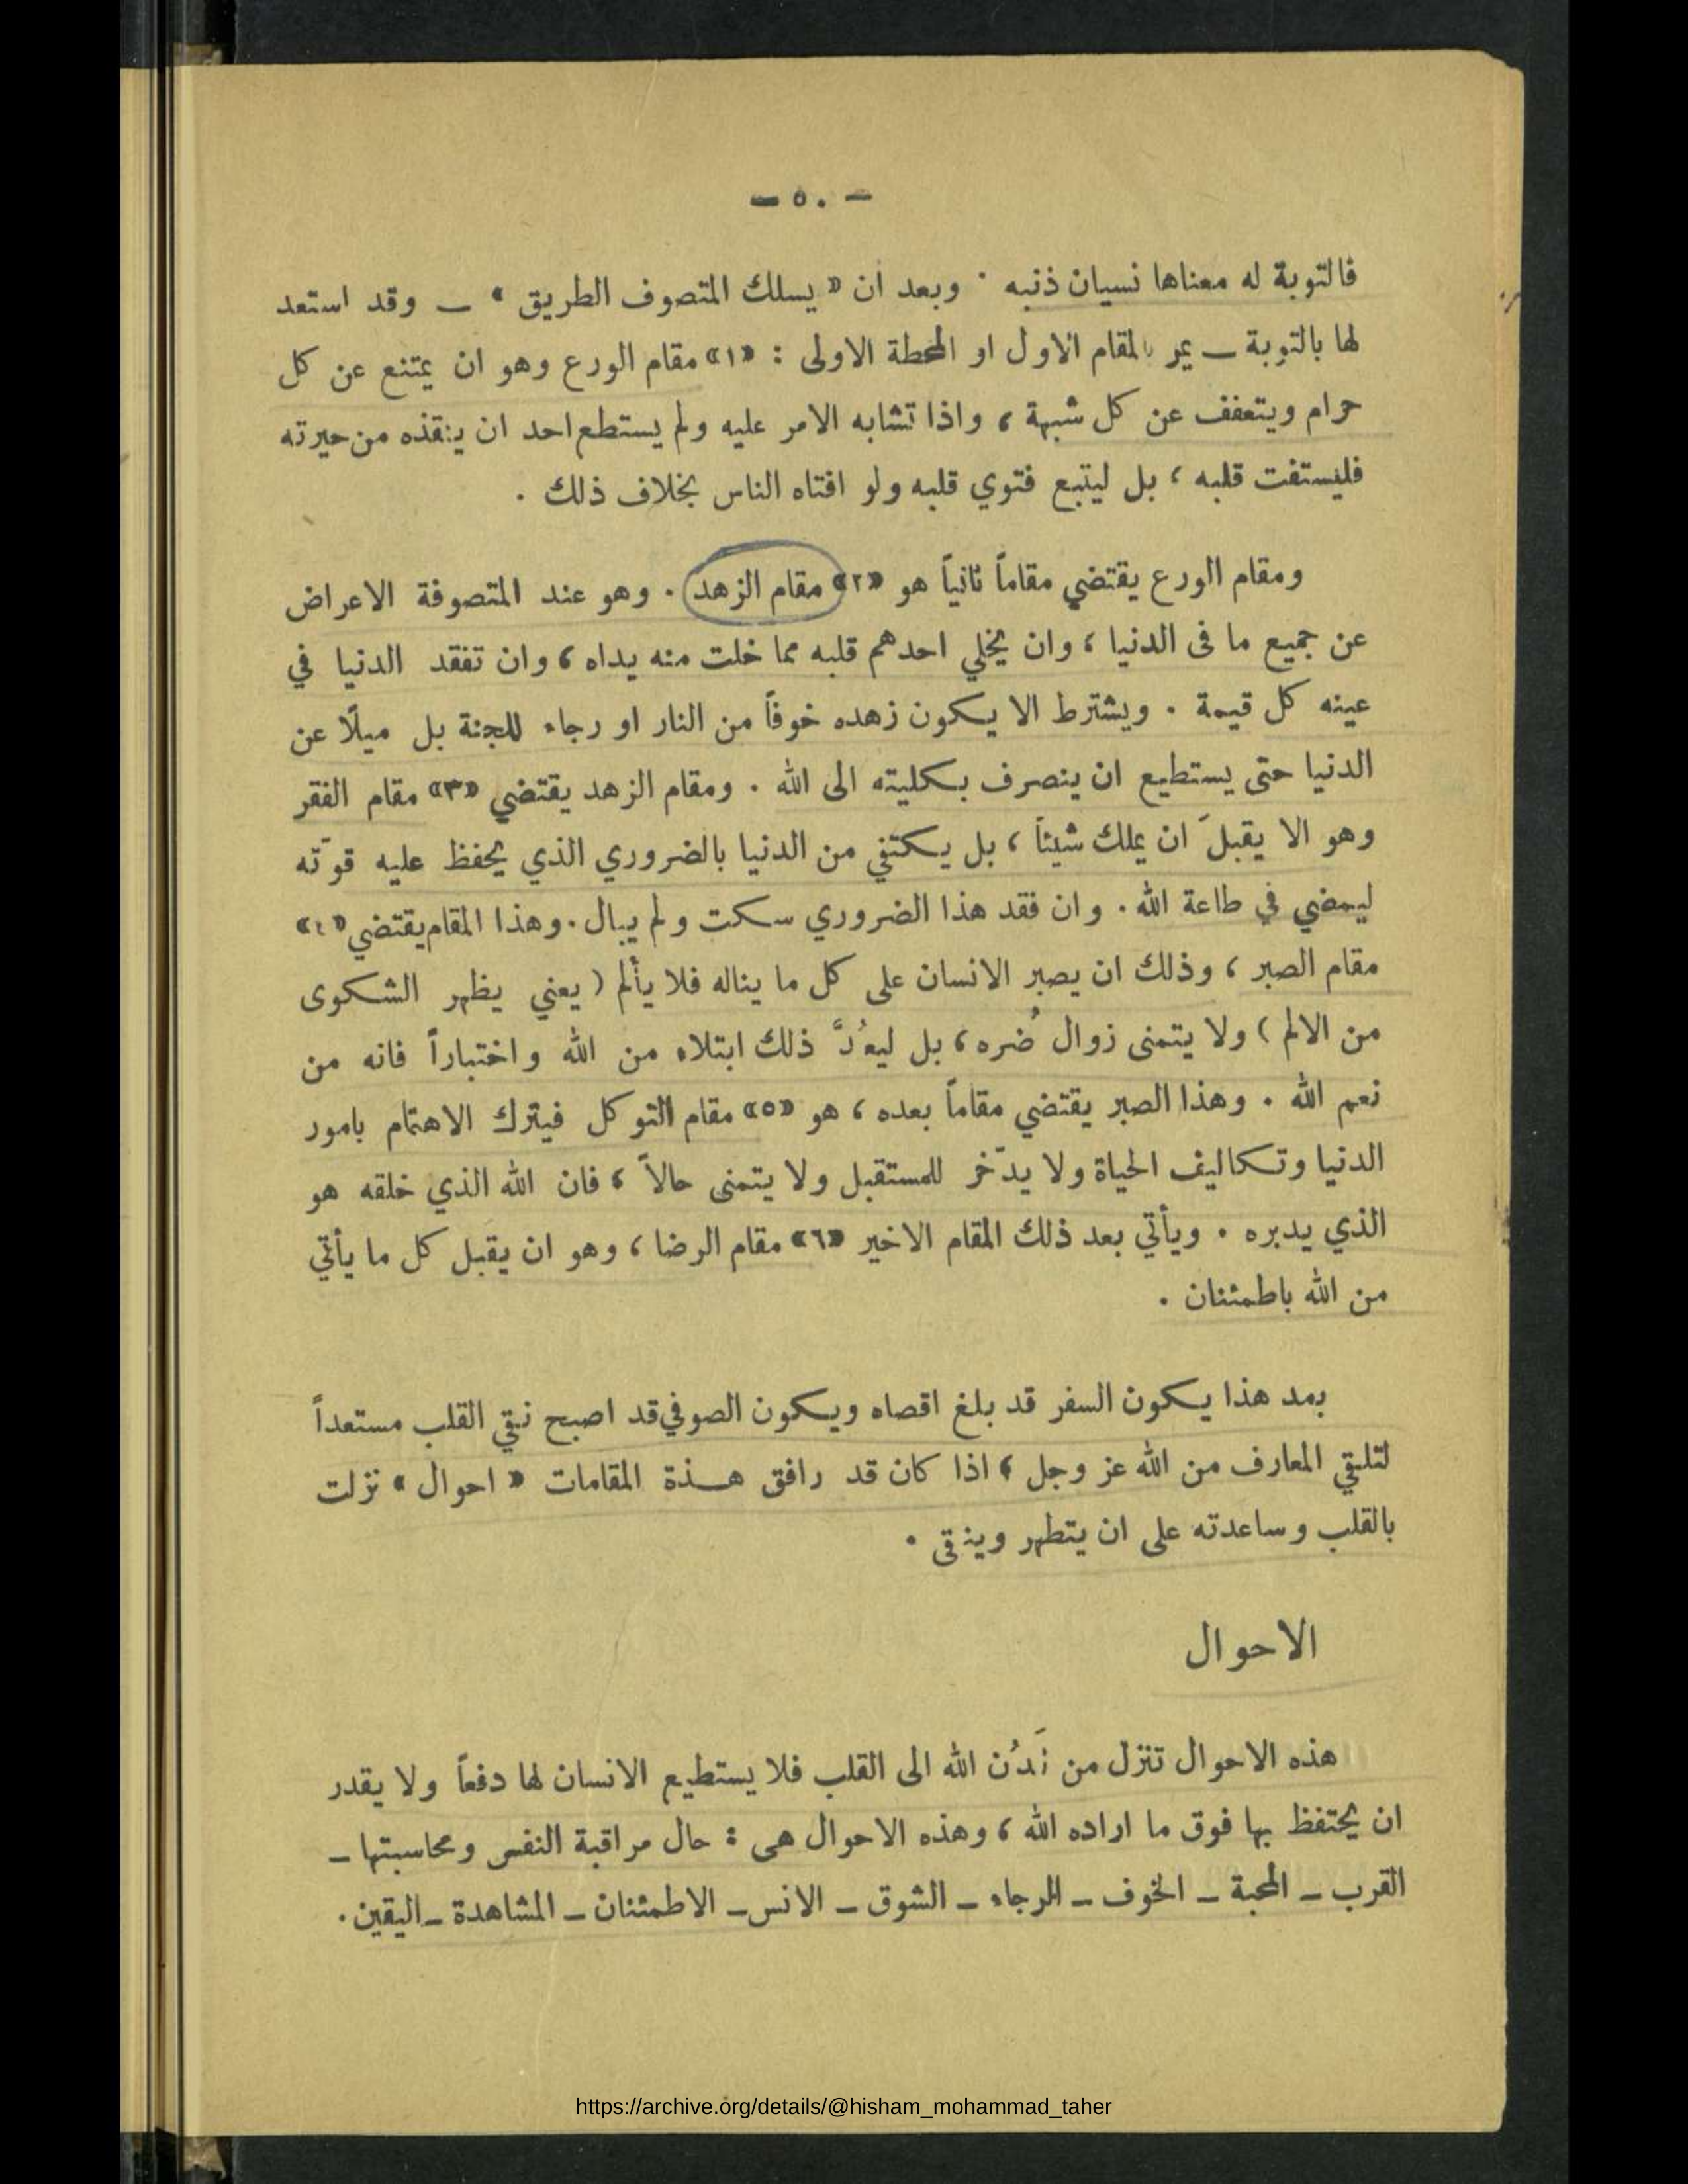 — ٥٠ —
فالتوبة له معناها نسيان ذنبه . وبعد ان « يسلك المتصوف الطريق » — وقد استعد
لها بالتوبة — يمر بالمقام الاول او المحطة الاولى : «١» مقام الورع وهو ان يمتنع عن كل
حرام ويتعفف عن كل شبهة ، واذا تشابه الامر عليه ولم يستطع احد ان ينقذه من حيرته
فليستفت قلبه ، بل ليتبع فتوي قلبه ولو افتاه الناس بخلاف ذلك .
ومقام الورع يقتضي مقاماً ثانياً هو «٢» مقام الزهد . وهو عند المتصوفة الاعراض
عن جميع ما فى الدنيا ، وان يخلي احدهم قلبه مما خلت منه يداه ، وان تفقد الدنيا في
عينه كل قيمة . ويشترط الا يكون زهده خوفاً من النار او رجاء للجنة بل ميلًا عن
الدنيا حتى يستطيع ان ينصرف بكليته الى الله . ومقام الزهد يقتضي «٣» مقام الفقر
وهو الا يقبلَ ان يملك شيئاً ، بل يكتفي من الدنيا بالضروري الذي يحفظ عليه قوّته
ليمضي في طاعة الله . وان فقد هذا الضروري سكت ولم يبال . وهذا المقام يقتضي «٤»
مقام الصبر ، وذلك ان يصبر الانسان على كل ما يناله فلا يألم ( يعني يظهر الشكوى
من الالم ) ولا يتمنى زوال ضُره ، بل ليعُدَّ ذلك ابتلاء من الله واختباراً فانه من
نعم الله . وهذا الصبر يقتضي مقاماً بعده ، هو «٥» مقام التوكل فيترك الاهتمام بامور
الدنيا وتكاليف الحياة ولا يدّخر للمستقبل ولا يتمنى حالاً ، فان الله الذي خلقه هو
الذي يدبره . ويأتي بعد ذلك المقام الاخير «٦» مقام الرضا ، وهو ان يقبل كل ما يأتي
من الله باطمئنان .
بعد هذا يكون السفر قد بلغ اقصاه ويكون الصوفي قد اصبح نقي القلب مستعداً
لتلقي المعارف من الله عز وجل ، اذا كان قد رافق هذة المقامات « احوال » نزلت
بالقلب وساعدته على ان يتطهر وينقى .
الاحوال
هذه الاحوال تنزل من لَدُن الله الى القلب فلا يستطيع الانسان لها دفعاً ولا يقدر
ان يحتفظ بها فوق ما اراده الله ، وهذه الاحوال هى : حال مراقبة النفس ومحاسبتها —
القرب — المحبة — الخوف — الرجاء — الشوق — الانس — الاطمئنان — المشاهدة — اليقين .
https://archive.org/details/@hisham_mohammad_taher